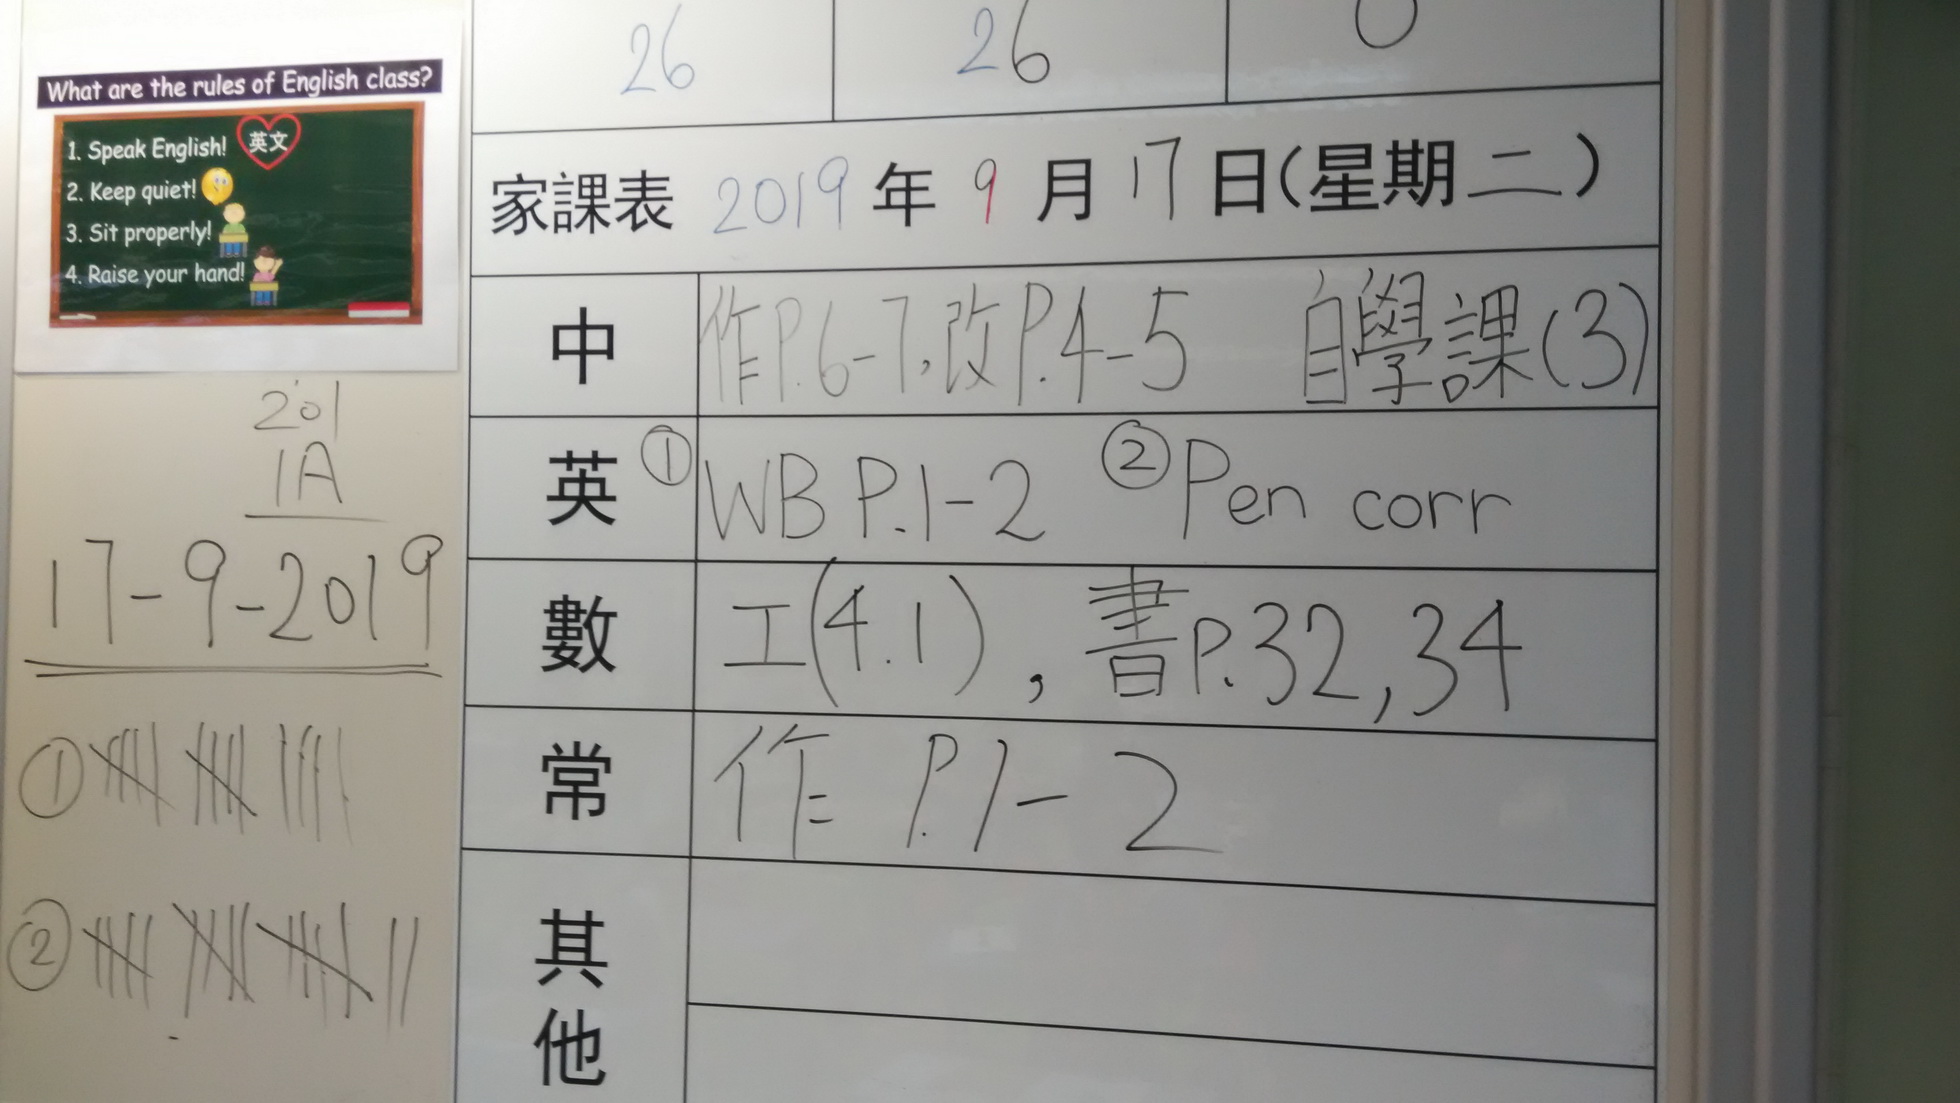 What are the rules of English class?
1. Speak English! 英文
2. Keep quiet!
3. Sit properly!
4. Raise your hand!
201
1A
17-9-2019
①
②
26 26 0
家課表 2019年9月17日(星期二)
中 作P.6-7,改P.4-5 自學課(3)
英 ①WB P.1-2 ②Pen corr
數 工(4.1),書P.32,34
常 作 P.1-2
其他